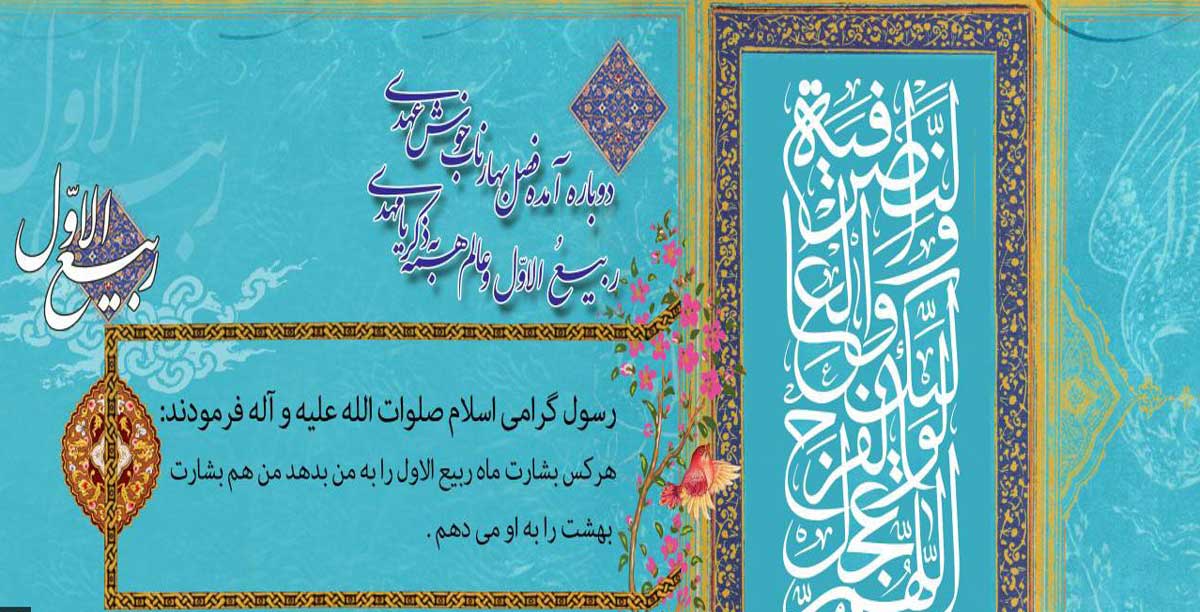 دوباره آمده فصل بهار ناب خوش عهدی
ربیعُ الاوّل و عالم همه به ذکر یا مهدی
ربیع الاوّل
رسول گرامی اسلام صلوات الله علیه و آله فرمودند:
هرکس بشارت ماه ربیع الاول را به من بدهد من هم بشارت
بهشت را به او می دهم .
اللّهم عجّل لولیک الفرج والعافیة والنّصر
ربیع الاوّل